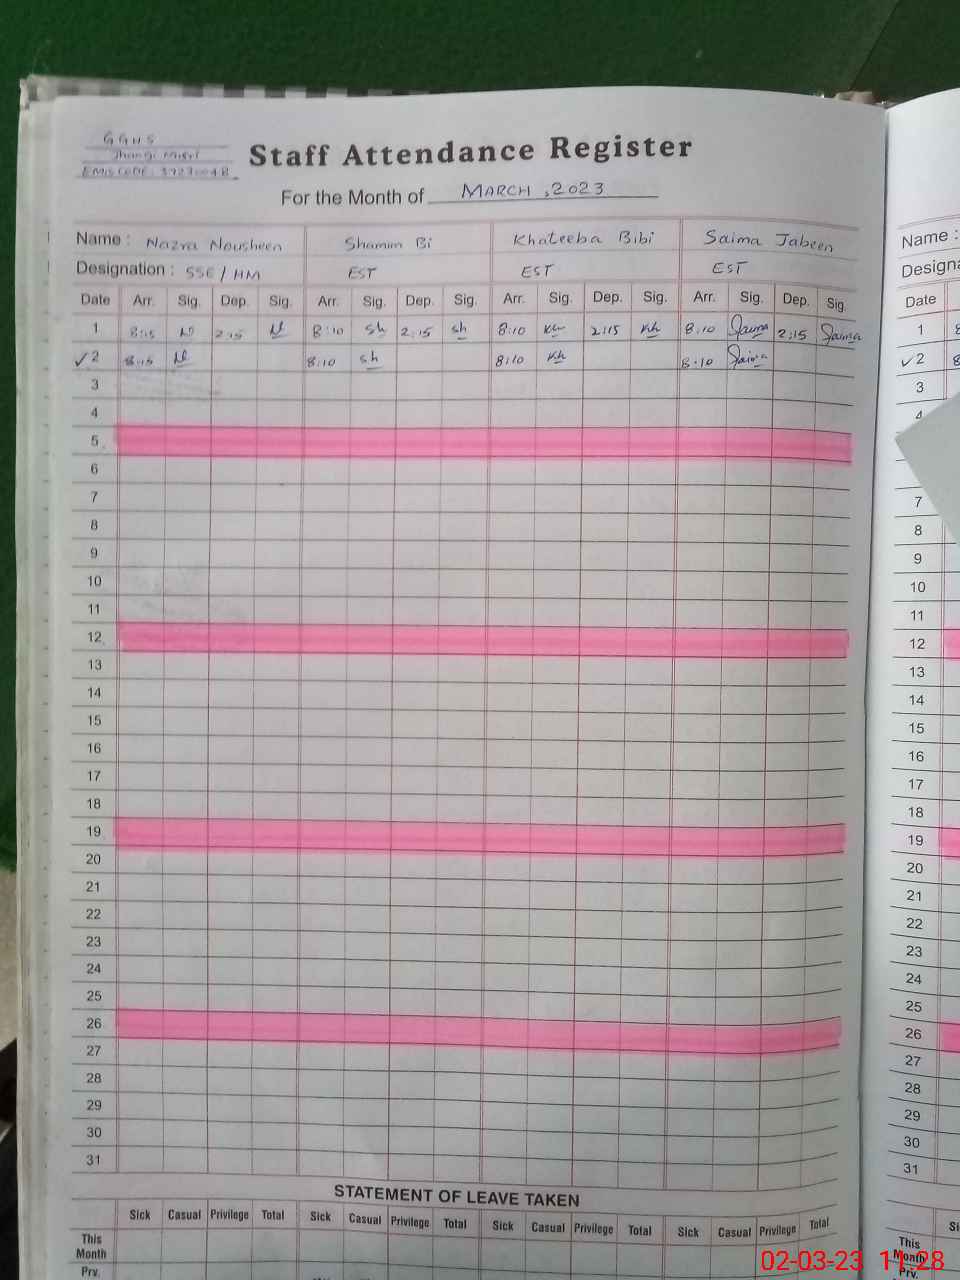 GGHS
Jhangi Misri
EMIS CODE. 37270048
Staff Attendance Register
For the Month of MARCH, 2023
Name : Nazra Nousheen Shamim Bi Khateeba Bibi Saima Jabeen Name :
Designation : SSE / HM EST EST EST Designa
Date Arr. Sig. Dep. Sig. Arr. Sig. Dep. Sig. Arr. Sig. Dep. Sig. Arr. Sig. Dep. Sig. Date
1 8:15 N 2:15 N 8:10 Sh 2:15 Sh 8:10 Kh 2:15 Kh 8:10 Saima 2:15 Saima 1 8
✓2 8:15 N 8:10 Sh 8:10 Kh 8.10 Saima ✓2 8
3 3
4 4
5
6
7 7
8 8
9 9
10 10
11 11
12 12
13 13
14 14
15 15
16 16
17 17
18 18
19 19
20 20
21 21
22 22
23 23
24 24
25 25
26 26
27 27
28 28
29 29
30 30
31 31
STATEMENT OF LEAVE TAKEN
Sick Casual Privilege Total Sick Casual Privilege Total Sick Casual Privilege Total Sick Casual Privilege Total Si
This Month This Month
Prv. Prv.
02-03-23 11:28